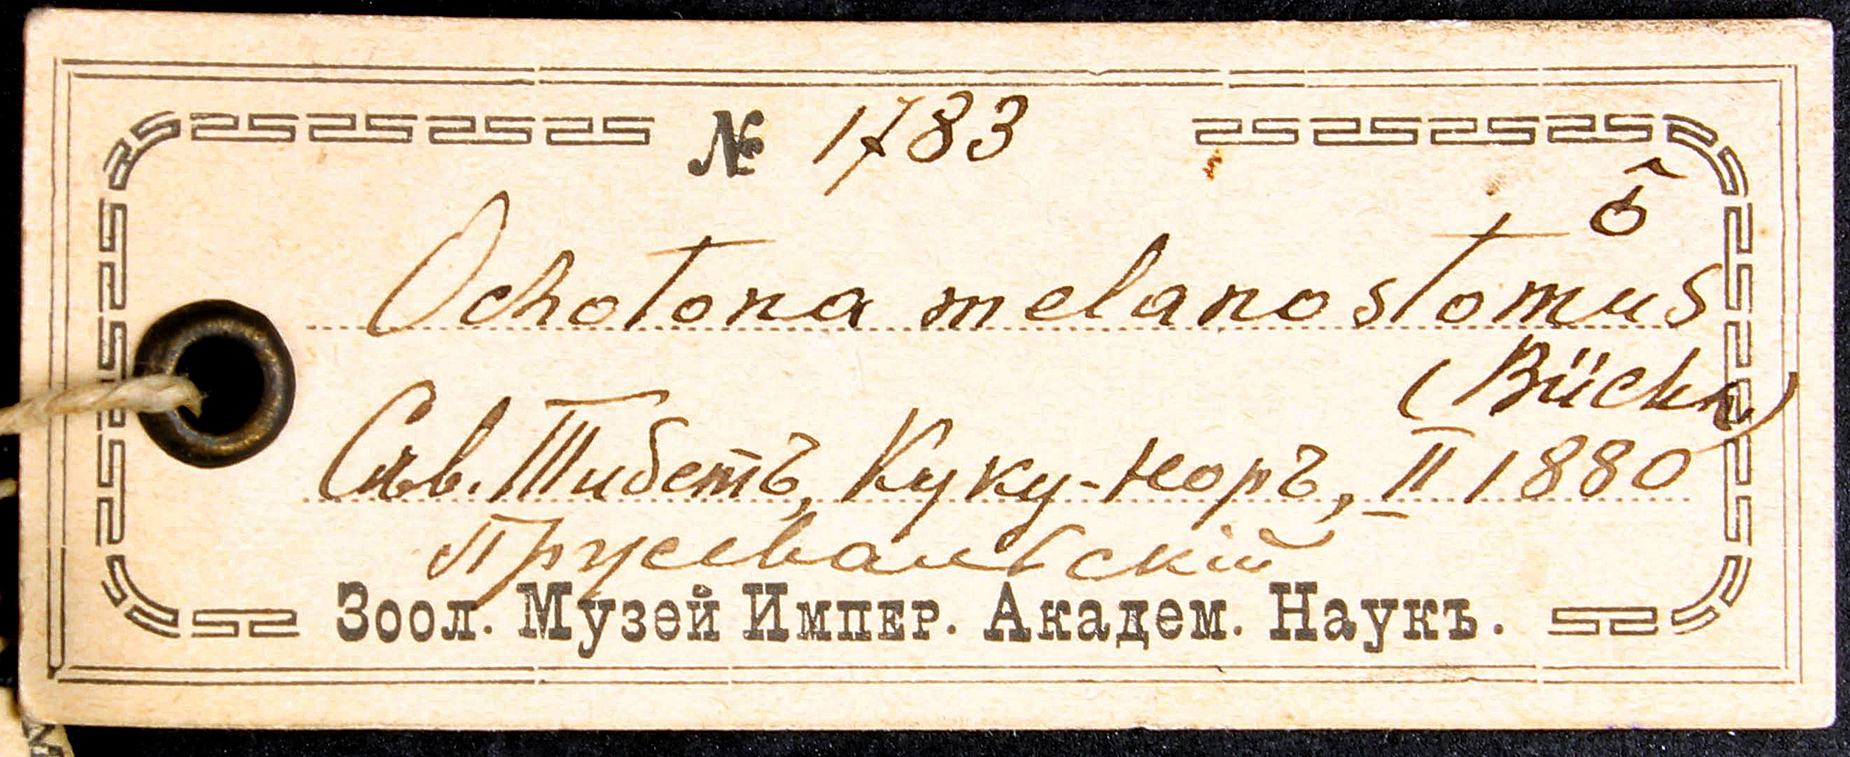 № 1783
Ochotona melanostomus
(Büchn)
Сѣв. Тибетъ, Куку-Норъ, II 1880
Пржевальскій
Зоол. Музей Импер. Академ. Наукъ.